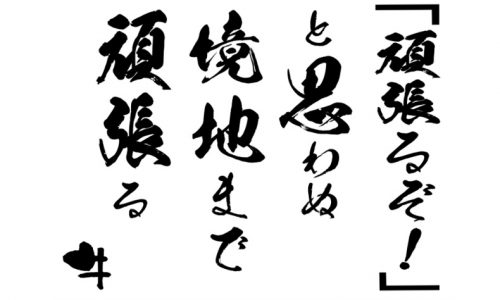 「頑張るぞ！」
と思わぬ
境地まで
頑張る